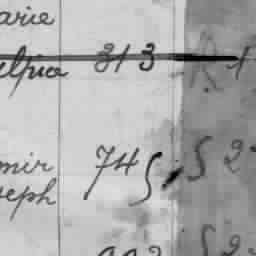 arie
elpia 313 R 1
mir 745 S 2
seph